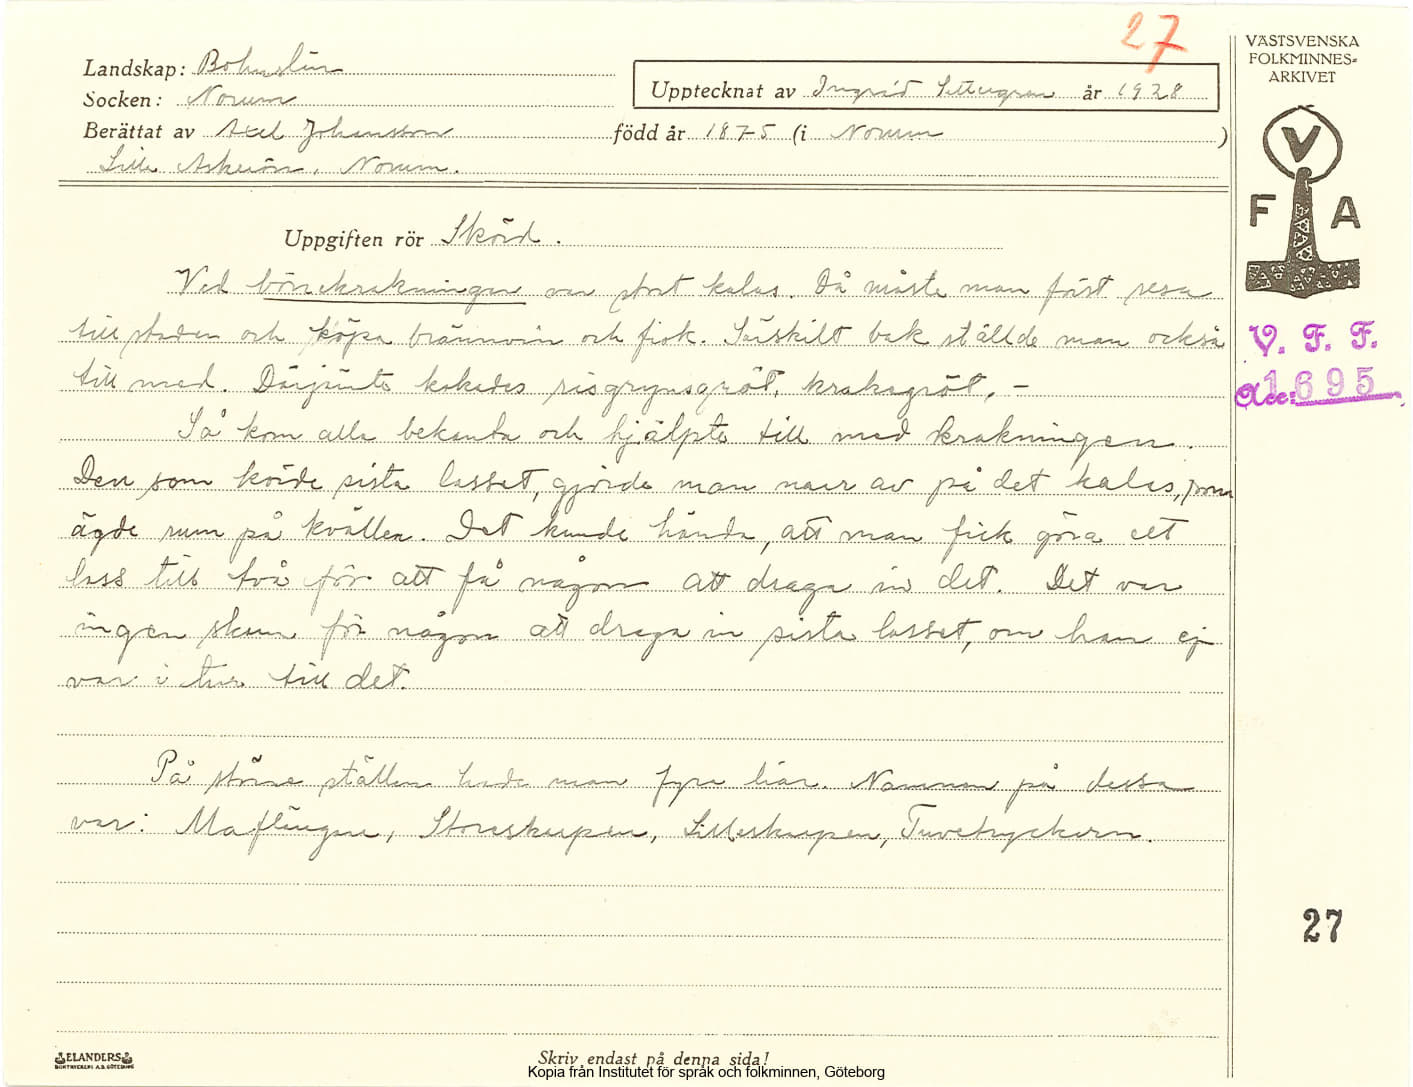 27
VÄSTSVENSKA
FOLKMINNES-
ARKIVET
V
F A
V. F. F.
Acc: 1695
Landskap: Bohuslän
Socken: Norum
Upptecknat av Ingrid år 1928
Berättat av Axel Johansson född år 1875 (i Norum)
Lille Askerön, Norum.
Uppgiften rör Skörd.
Ved bönekrakningen var stort kalas. Då måste man först resa
till staden och köpa brännvin och fisk. Särskilt bak ställde man också
till med. Därjämte kokades risgrynsgröt, krakagröt. –
Så kom alla bekanta och hjälpte till med krakningen.
Den som körde sista lasset, gjorde man narr av på det kalas, som
ägde rum på kvällen. Det kunde hända, att man fick göra ett
lass till två för att få någon att draga in det. Det var
ingen skam för någon att draga in sista lasset, om han ej
var i tur till det.
På större ställen hade man fyra liar. Namnen på dessa
var: Maflängare, Storeskarpen, Lilleskarpen, Tuvetryckarn.
27
ELANDERS
BOKTRYCKERI A.B. GÖTEBORG
Skriv endast på denna sida!
Kopia från Institutet för språk och folkminnen, Göteborg